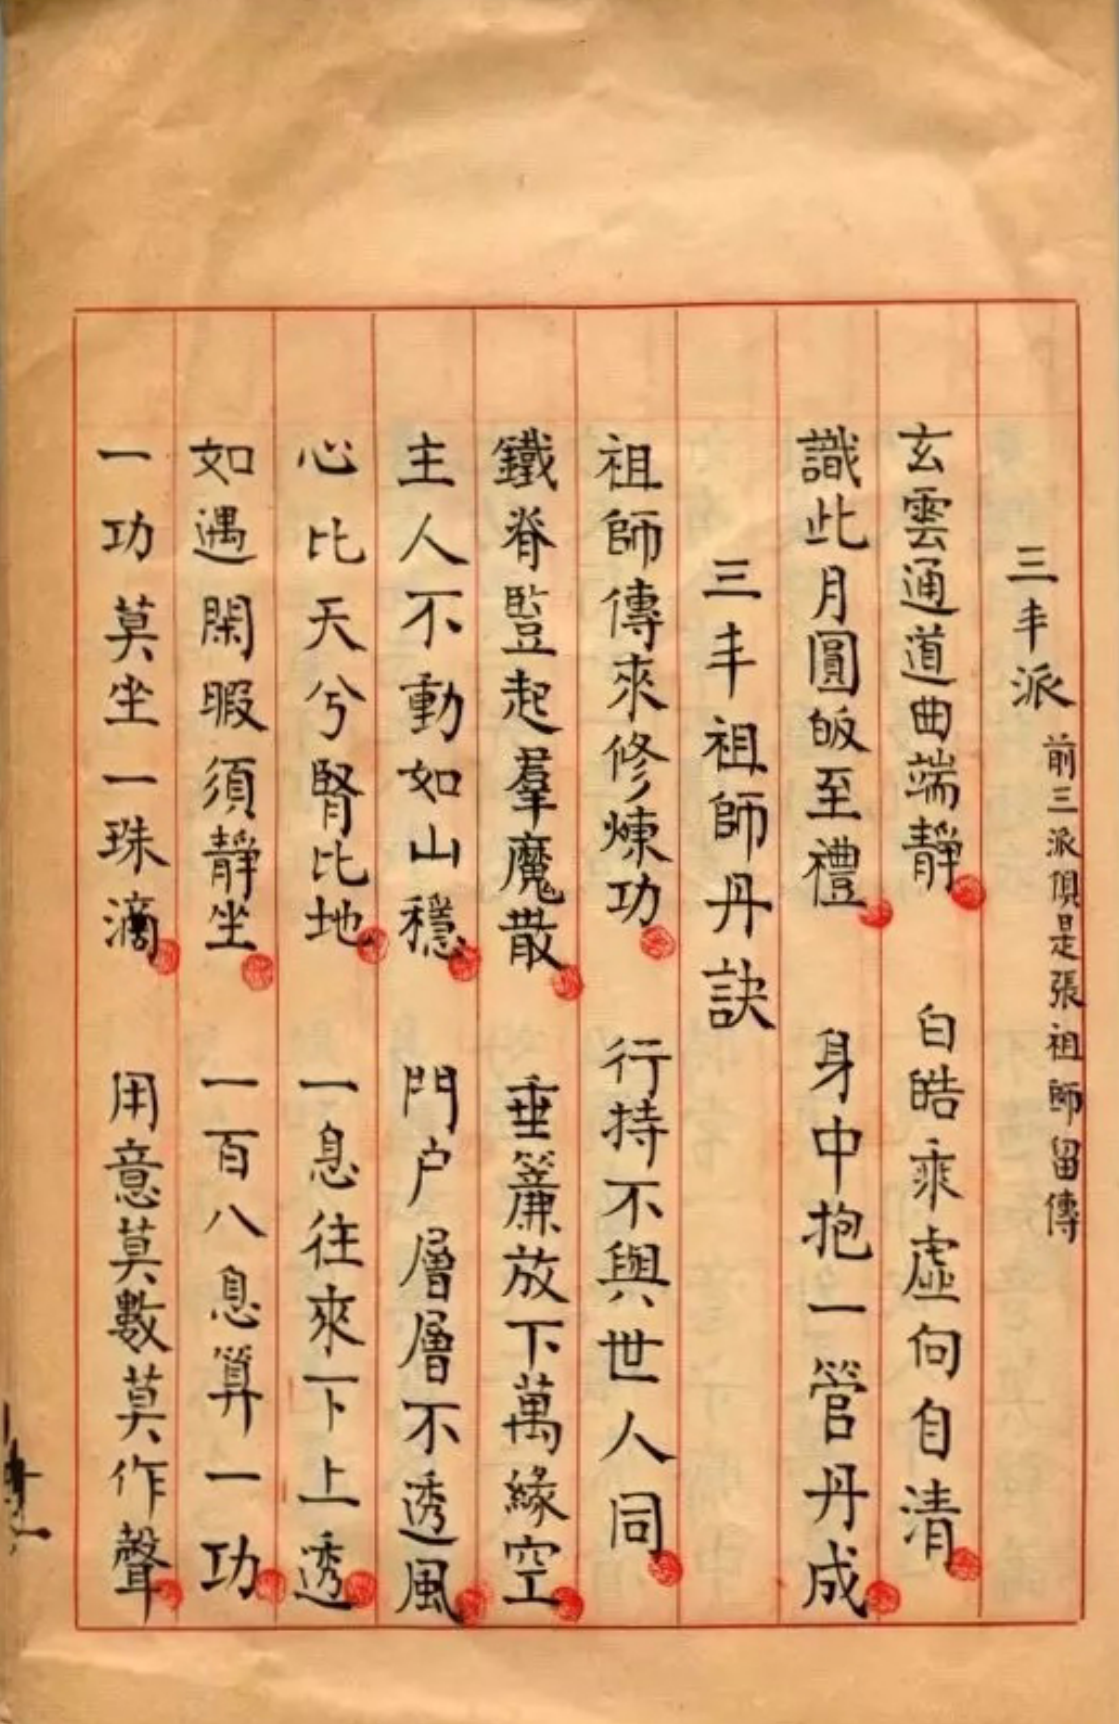 三丰派 前三派俱是張祖師留傳
玄雲通道曲端靜 白皓乘虛向自清
識此月圓皈至禮 身中抱一管丹成
三丰祖師丹訣
祖師傳來修煉功 行持不與世人同
鐵脊豎起羣魔散 垂簾放下萬緣空
主人不動如山穩 門户層層不透風
心比天兮腎比地 一息往來下上透
如遇閑暇須靜坐 一百八息算一功
一功莫坐一珠滴 用意莫數莫作聲